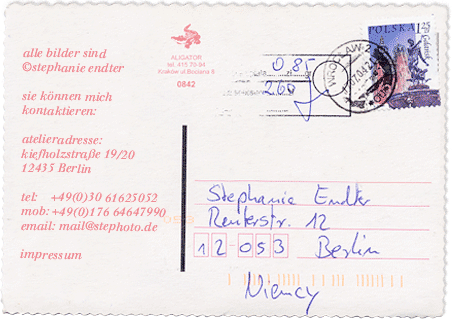 alle bilder sind
©stephanie endter
sie können mich
kontaktieren:
atelieradresse:
kiefholzstraße 19/20
12435 Berlin
tel: +49(0)30 61625052
mob: +49(0)176 64647990
email: mail@stephoto.de
impressum
ALIGATOR
tel. 415 76-94
Kraków ul.Beidana 8
0842
0.85
2.60
WROCŁAW 2
POLSKA 1,25
Gdańsk
Stephanie Endter
Reuterstr. 12
12-053 Berlin
Niemcy